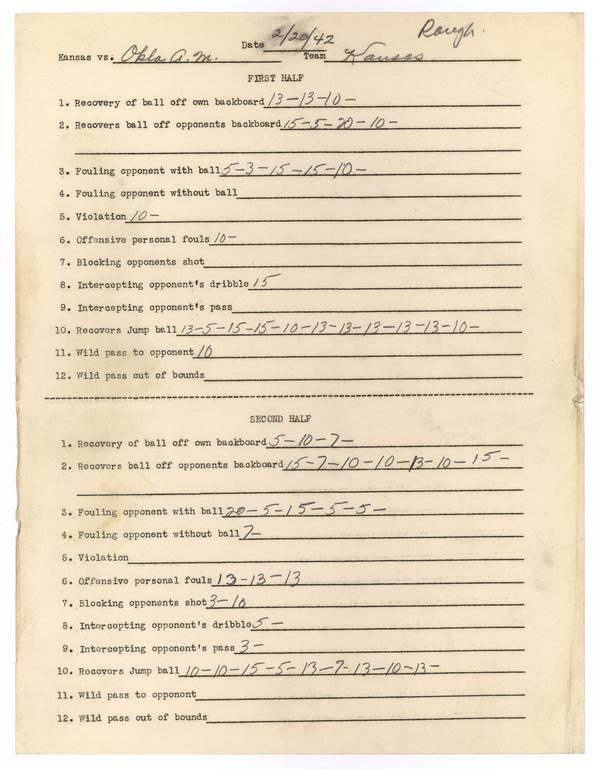 Rough.
Date 2/20/42
Kansas vs. Okla A.M. Team Kansas
FIRST HALF
1. Recovery of ball off own backboard 13-13-10-
2. Recovers ball off opponents backboard 15-5-20-10-
3. Fouling opponent with ball 5-3-15-15-10-
4. Fouling opponent without ball
5. Violation 10-
6. Offensive personal fouls 10-
7. Blocking opponents shot
8. Intercepting opponent's dribble 15
9. Intercepting opponent's pass
10. Recovers Jump ball 13-5-15-15-10-13-13-13-13-13-10-
11. Wild pass to opponent 10
12. Wild pass out of bounds
SECOND HALF
1. Recovery of ball off own backboard 5-10-7-
2. Recovers ball off opponents backboard 15-7-10-10-13-10-15-
3. Fouling opponent with ball 20-5-15-5-5-
4. Fouling opponent without ball 7-
5. Violation
6. Offensive personal fouls 13-13-13
7. Blocking opponents shot 3-10
8. Intercepting opponent's dribble 5-
9. Intercepting opponent's pass 3-
10. Recovers Jump ball 10-10-15-5-13-7-13-10-13-
11. Wild pass to opponent
12. Wild pass out of bounds